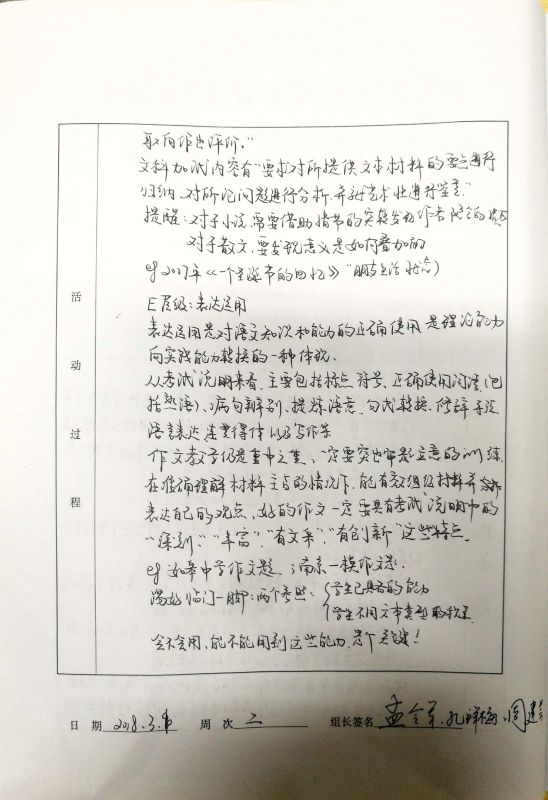 取向作出评价。”
文科加试内容有“要求对所提供文本材料的要点进行
归纳、对所论问题进行分析、并对艺术性进行鉴赏”
提醒：对于小说，需要借助情节的突转发现作者隐含的
对于散文，要发现意义是如何叠加的
eg 2017年《一个圣诞节的回忆》“朋友生活状态”
E层级：表达运用
表达运用是对语文知识和能力的正确使用，是理论能力
向实践能力转换的一种体现、
从考试说明来看，主要包括标点符号、正确使用词语(包
括熟语)、病句辨别、提炼语意、句式转换、修辞手法
语言表达 得体以及写作等
作文教学仍是重中之重、一定要突出审题立意的训练
在准确理解材料主旨的情况下，能有效组织材料并
表达自己的观点、好的作文一定要具有考试说明中的
“深刻”、“丰富”、“有文采”、“有创新”这些特点。
eg 如皋中学作文题、南京一模作文题、
踢好临门一脚：两个参照：{学生已具备的能力
学生不同文本类型的
会不会用、能不能用到这些能力，是个关键！
活动过程
日期 2018.3. 周次 二 组长签名 孟令军、孔祥 、周建